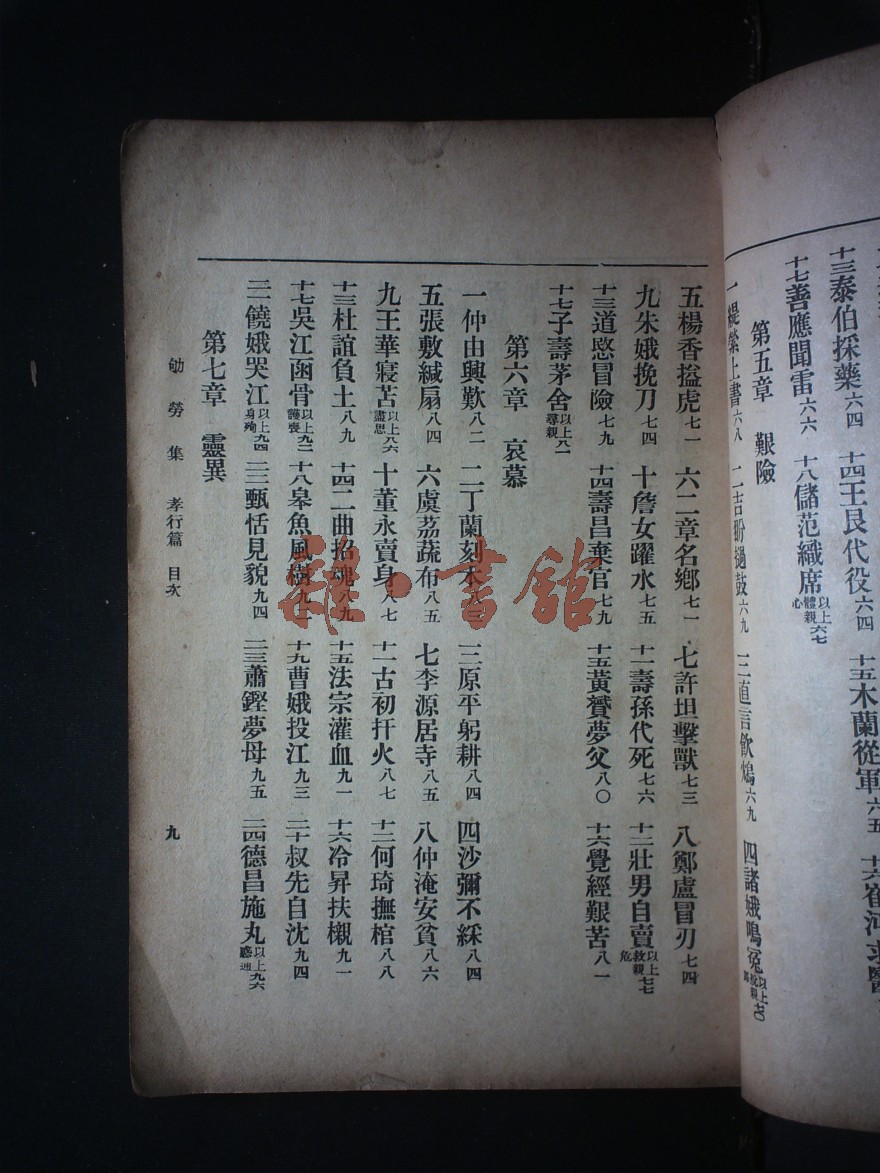 十三泰伯採藥六四　十四王艮代役六四　十五木蘭從軍六五
十七善應聞雷六六　十八儲范織席以上六七體親心
第五章　艱險
一緹縈上書六八　二吉翂撾鼓六九　三直言飲鴆六九　四諸娥鳴冤
五楊香搤虎七一　六二章名鄉七一　七許坦擊獸七三　八鄭盧冒刃七四
九朱娥挽刀七四　十詹女躍水七五　十一壽孫代死七六　十二壯男自賣以上七七救親危
十三道愍冒險七九　十四壽昌棄官七九　十五黃贇夢父八〇　十六覺經艱苦八一
十七子壽茅舍以上八一尋親
第六章　哀慕
一仲由興歎八二　二丁蘭刻木八三　三原平躬耕八四　四沙彌不綵八四
五張敷緘扇八四　六虞荔蔬布八五　七李源居寺八五　八仲淹安貧八六
九王華寢苫以上八六盡思　十董永賣身八七　十一古初扞火八七　十二何琦撫棺八八
十三杜誼負土八九　十四二曲招魂八九　十五法宗灌血九一　十六冷昇扶櫬九一
十七吳江函骨以上九二護喪　十八皋魚風樹九二　十九曹娥投江九三　二十叔先自沈九四
二一饒娥哭江以上九四身殉　二二甄恬見貌九四　二三蕭鏗夢母九五　二四德昌施丸以上九六
第七章　靈異
劬勞集　孝行篇　目次
九
雜·書館